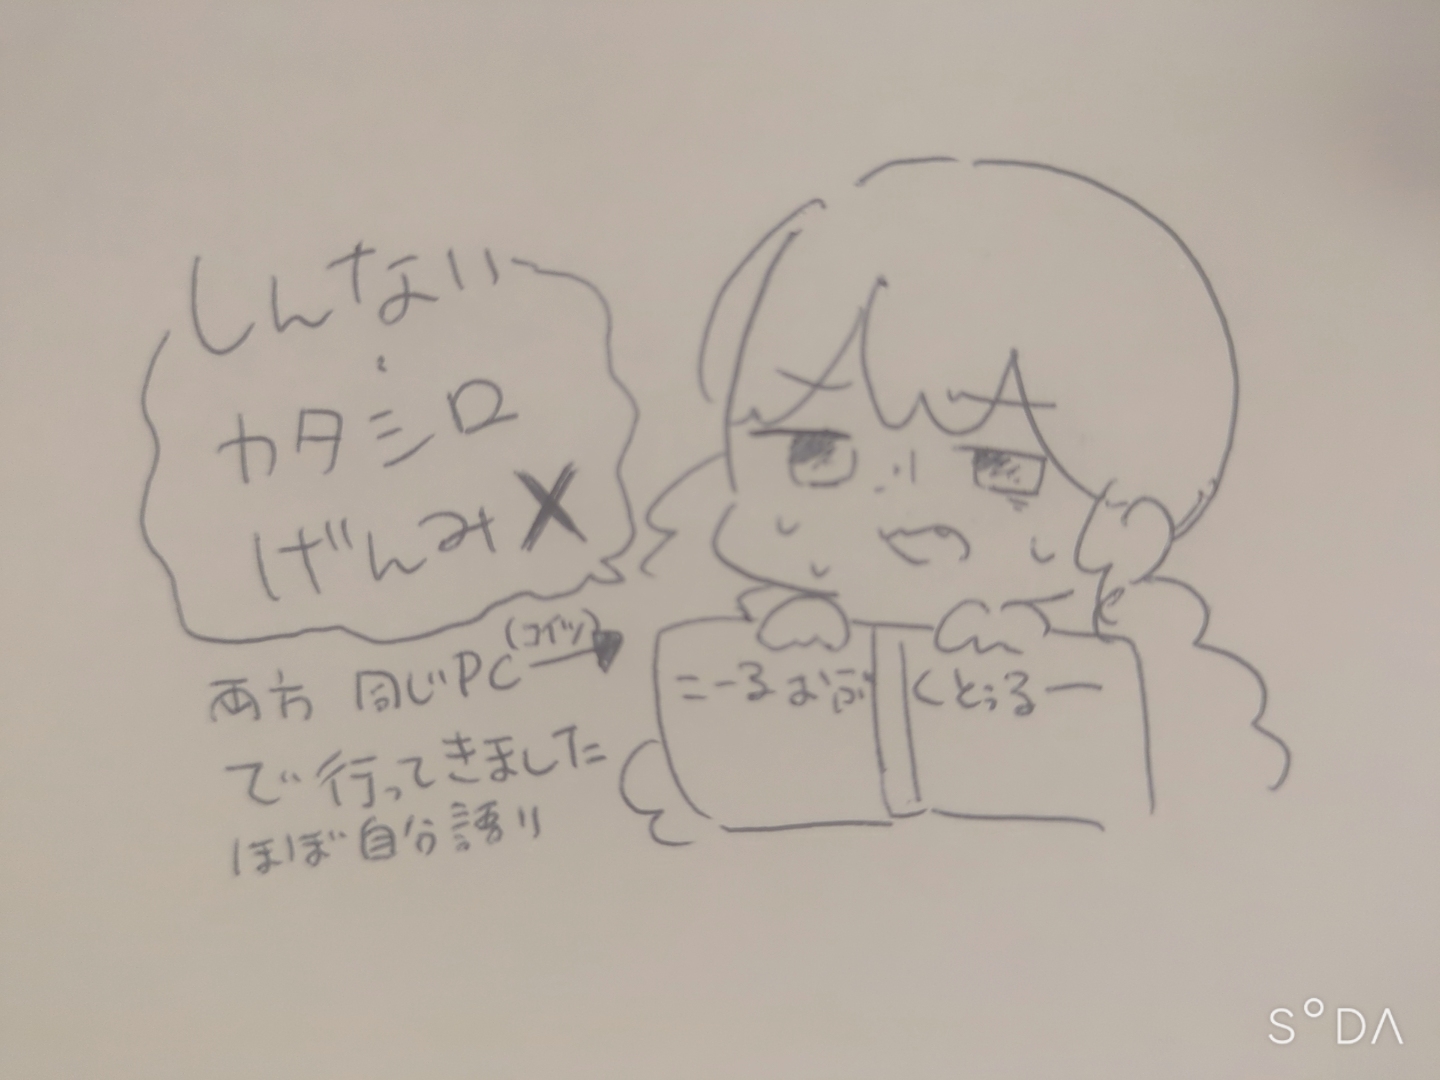 しんない
カタシロ
げんみ×
両方 同じPC
(コイツ)
で行ってきました
ほぼ自分語り
こーるおぶ
くとぅるー
SODA